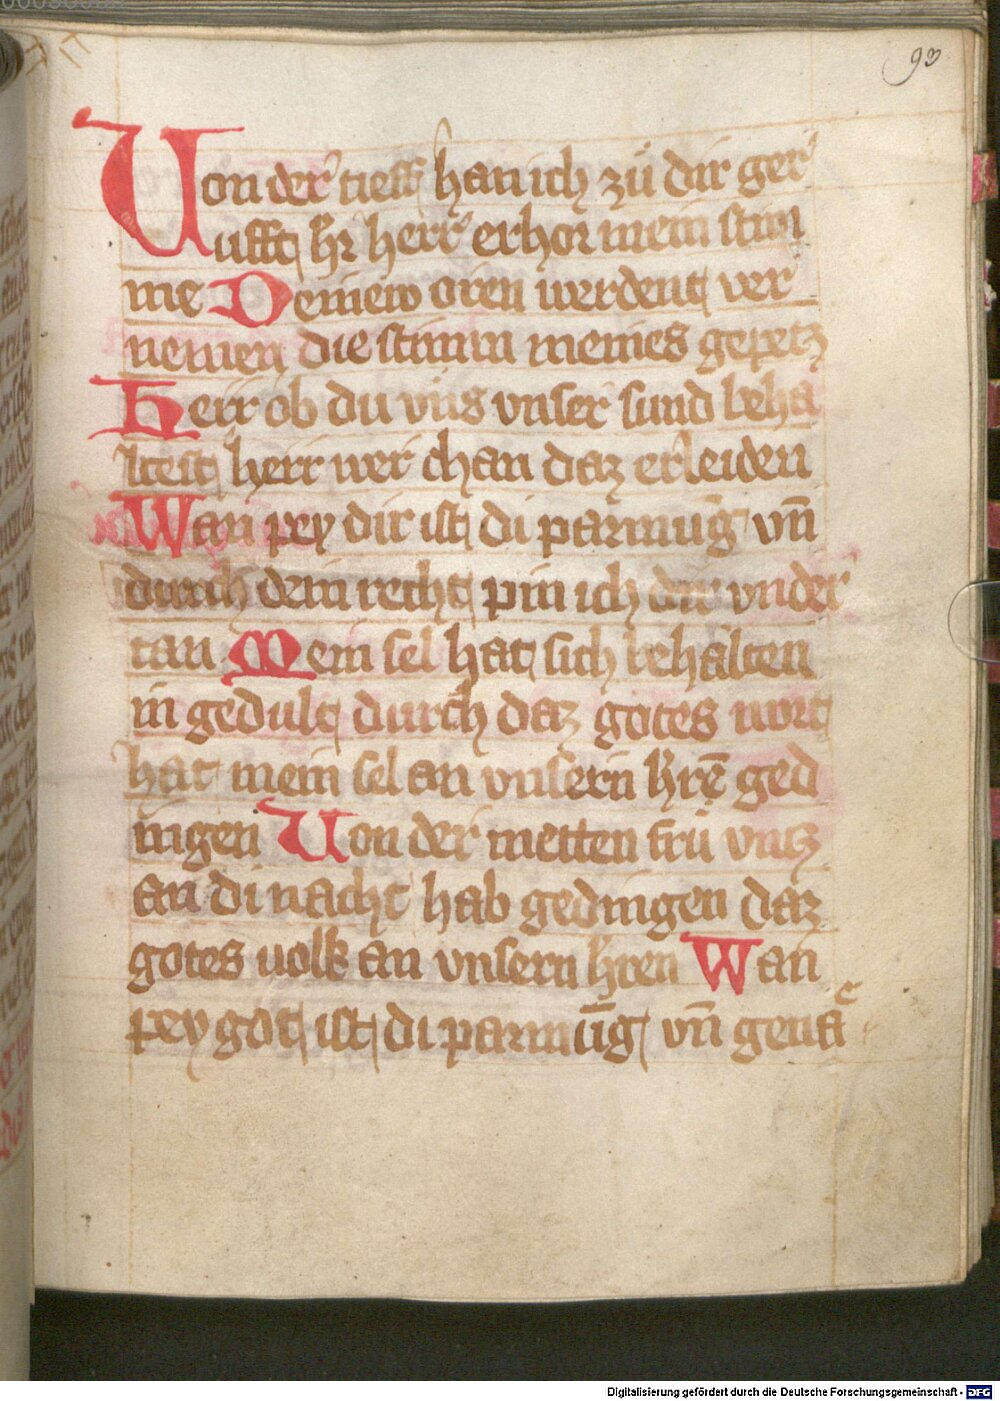 93
Von der tieff han ich zů dir ger
ufft hr herr erhor mein stim
me Deinew oren werdent ver
nemen die stimm meines gepetz
Herr ob du vns vnser sund beha
ltest herr wer chan daz erleiden
Wan pey dir ist di parmu̅g vn̅
durich dein recht pin ich dir vnder
tan Mein sel hat sich behalten
in gedult durch daz gotes wort
hat mein sel an vnsern hrē ged
ingen Von der metten frů vntz
an di nacht hab gedingen daz
gotes volk an vnsern hren Wan
pey got ist di parmu̅g vn̅ gena
Digitalisierung gefördert durch die Deutsche Forschungsgemeinschaft - DFG